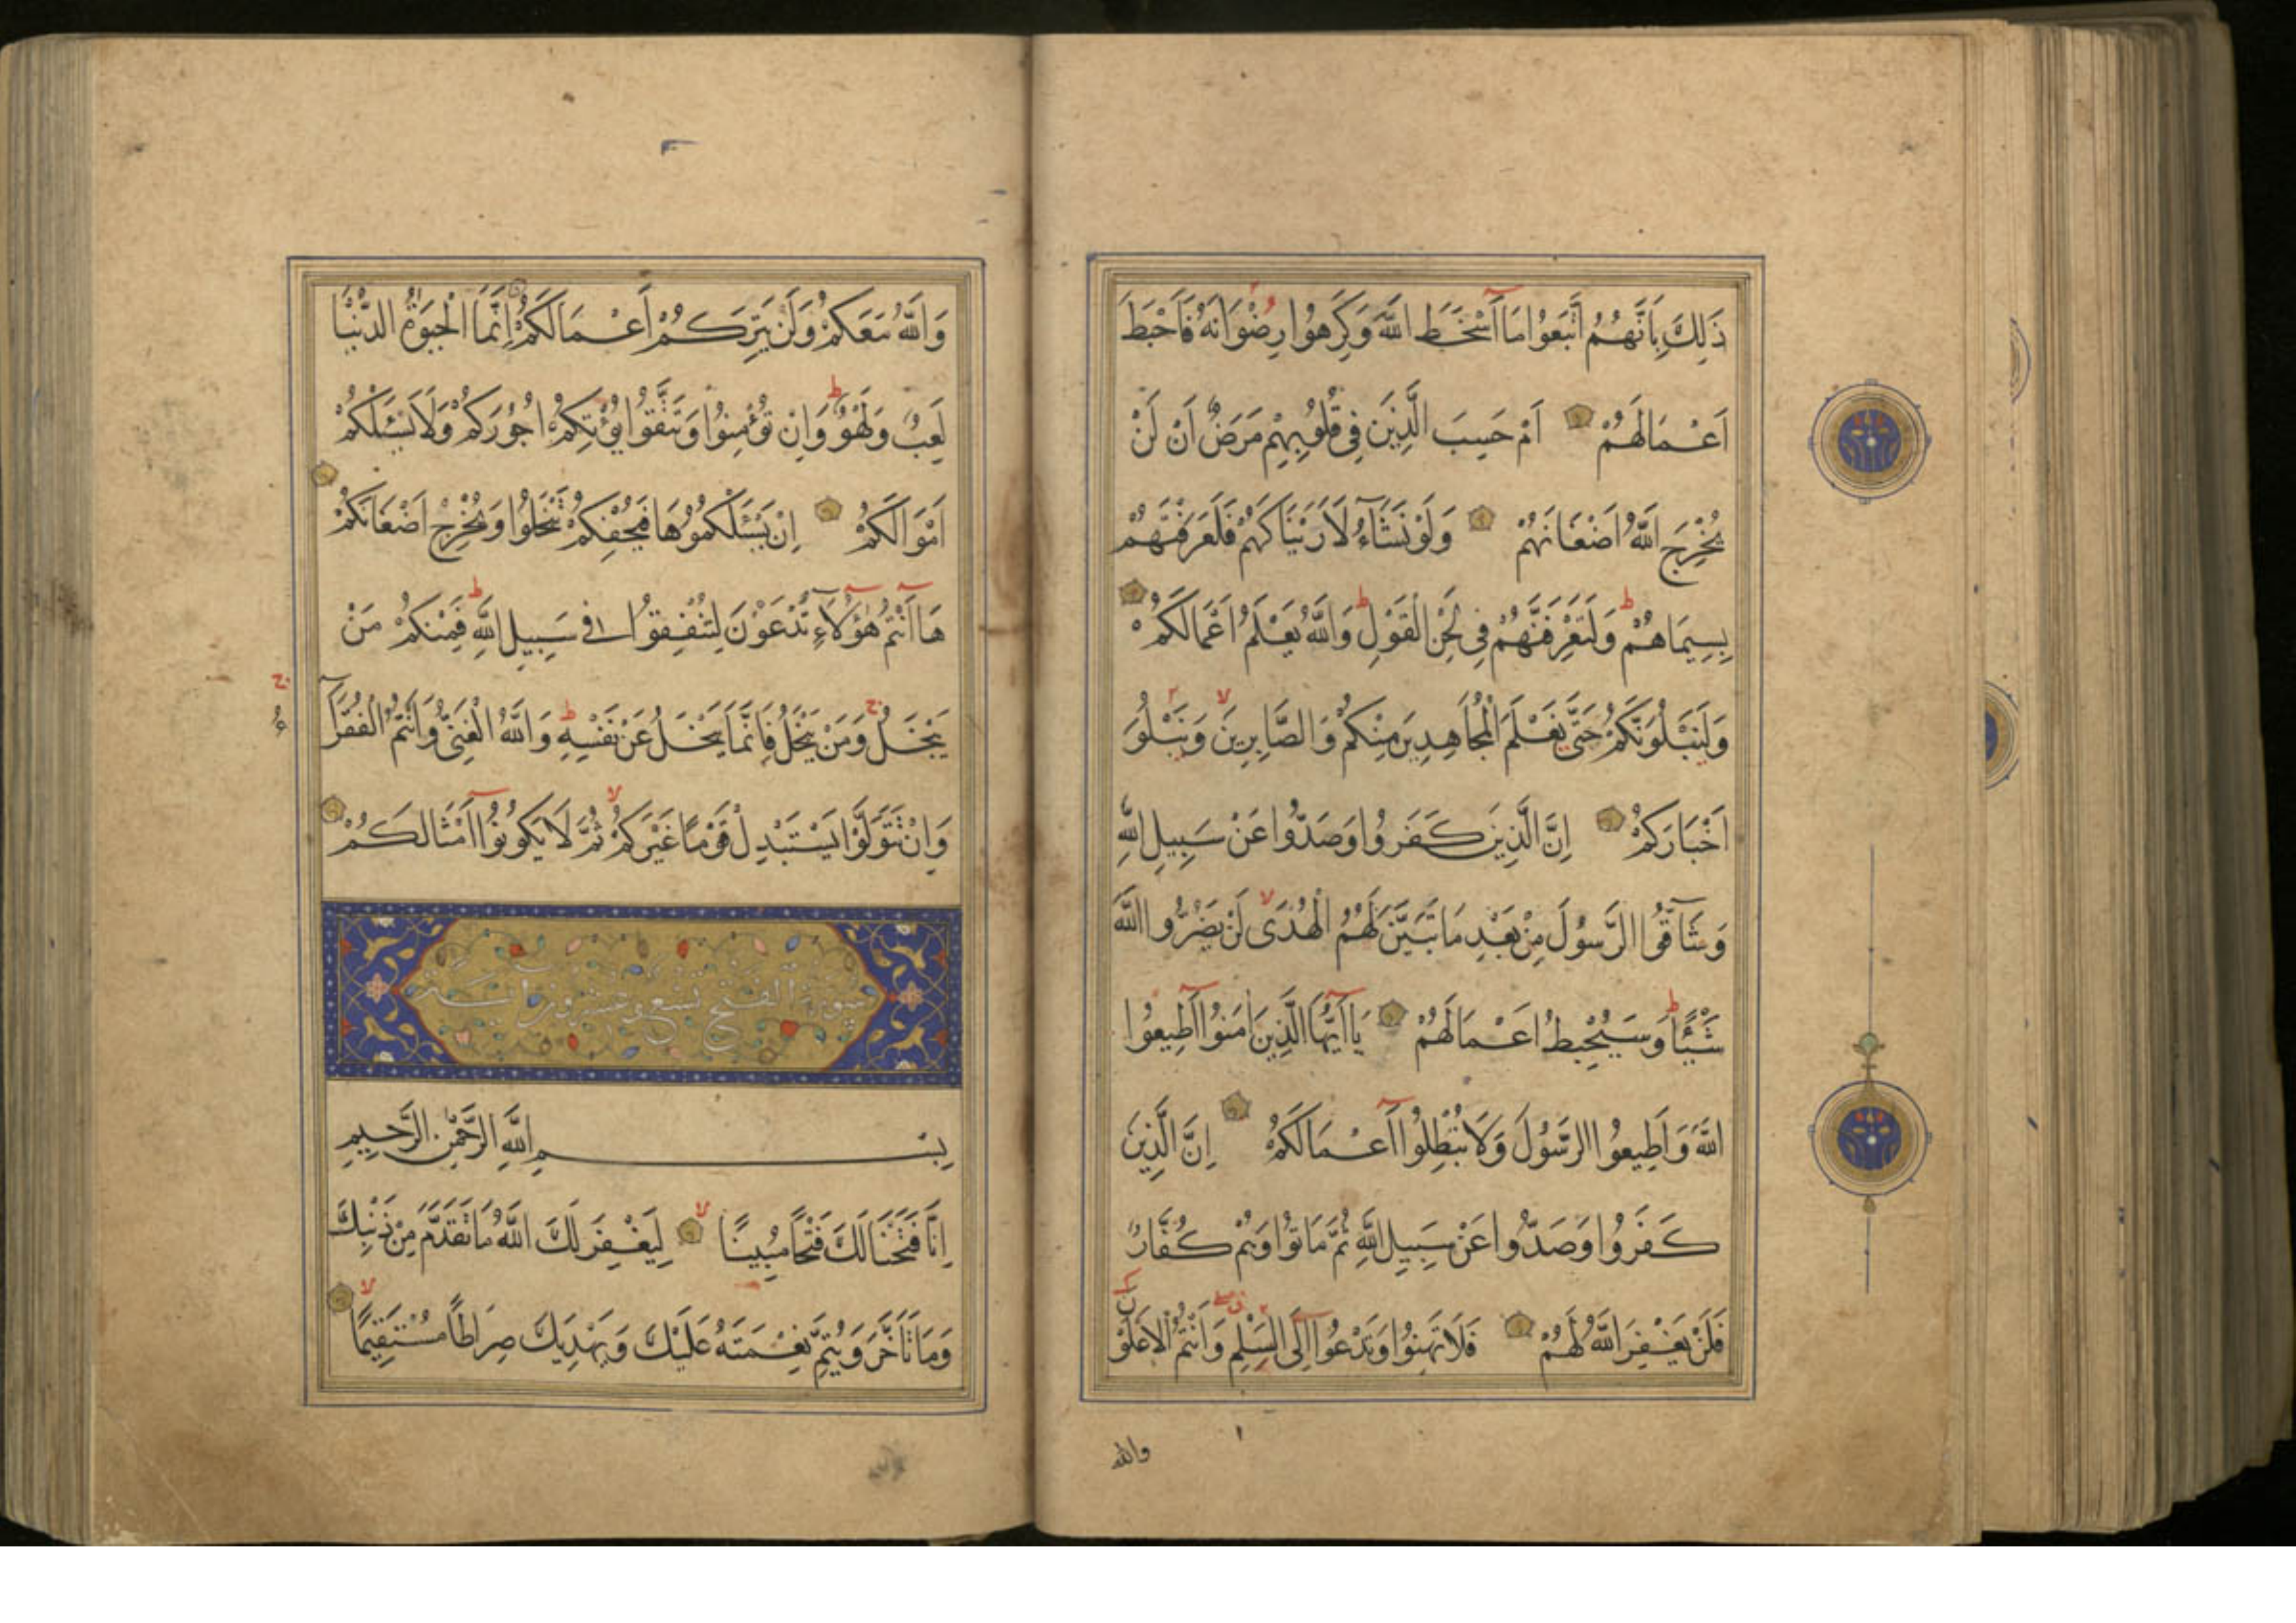 ذَلِكَ بِاَنَّهُمُ اتَّبَعُوا مَا اَسْخَطَ اللّٰهَ وَكَرِهُوا رِضْوَانَهُ فَاَحْبَطَ
اَعْمَالَهُمْ اَمْ حَسِبَ الَّذِينَ فِي قُلُوبِهِمْ مَرَضٌ اَنْ لَنْ
يُخْرِجَ اللّٰهُ اَضْغَانَهُمْ وَلَوْ نَشَآءُ لَاَرَيْنَاكَهُمْ فَلَعَرَفْتَهُمْ
بِسِيمَاهُمْ ط وَلَتَعْرِفَنَّهُمْ فِي لَحْنِ الْقَوْلِ ط وَاللّٰهُ يَعْلَمُ اَعْمَالَكُمْ
وَلَنَبْلُوَنَّكُمْ حَتَّى نَعْلَمَ الْمُجَاهِدِينَ مِنْكُمْ وَالصَّابِرِينَ لا وَنَبْلُوَ
اَخْبَارَكُمْ اِنَّ الَّذِينَ كَفَرُوا وَصَدُّوا عَنْ سَبِيلِ اللّٰهِ
وَشَآقُّوا الرَّسُولَ مِنْ بَعْدِ مَا تَبَيَّنَ لَهُمُ الْهُدَى لا لَنْ يَضُرُّوا اللّٰهَ
شَيْئًا ط وَسَيُحْبِطُ اَعْمَالَهُمْ يَا اَيُّهَا الَّذِينَ اٰمَنُوا اَطِيعُوا
اللّٰهَ وَاَطِيعُوا الرَّسُولَ وَلَا تُبْطِلُوا اَعْمَالَكُمْ اِنَّ الَّذِينَ
كَفَرُوا وَصَدُّوا عَنْ سَبِيلِ اللّٰهِ ثُمَّ مَاتُوا وَهُمْ كُفَّارٌ
فَلَنْ يَغْفِرَ اللّٰهُ لَهُمْ فَلَا تَهِنُوا وَتَدْعُوا اِلَى السَّلْمِ وَاَنْتُمُ الْاَعْلَوْنَ
والله
وَاللّٰهُ مَعَكُمْ وَلَنْ يَتِرَكُمْ اَعْمَالَكُمْ اِنَّمَا الْحَيٰوةُ الدُّنْيَا
لَعِبٌ وَلَهْوٌ ط وَاِنْ تُؤْمِنُوا وَتَتَّقُوا يُؤْتِكُمْ اُجُورَكُمْ وَلَا يَسْئَلْكُمْ
اَمْوَالَكُمْ اِنْ يَسْئَلْكُمُوهَا فَيُحْفِكُمْ تَبْخَلُوا وَيُخْرِجْ اَضْغَانَكُمْ
هَا اَنْتُمْ هٰؤُلَآءِ تُدْعَوْنَ لِتُنْفِقُوا فِي سَبِيلِ اللّٰهِ ط فَمِنْكُمْ مَنْ
يَبْخَلُ ج وَمَنْ يَبْخَلْ فَاِنَّمَا يَبْخَلُ عَنْ نَفْسِهِ ط وَاللّٰهُ الْغَنِيُّ وَاَنْتُمُ الْفُقَرَآءُ ج
وَاِنْ تَتَوَلَّوْا يَسْتَبْدِلْ قَوْمًا غَيْرَكُمْ لا ثُمَّ لَا يَكُونُوا اَمْثَالَكُمْ
سورة الفتح تسع وعشرون اية
بِسْمِ اللّٰهِ الرَّحْمٰنِ الرَّحِيمِ
اِنَّا فَتَحْنَا لَكَ فَتْحًا مُبِينًا لا لِيَغْفِرَ لَكَ اللّٰهُ مَا تَقَدَّمَ مِنْ ذَنْبِكَ
وَمَا تَاَخَّرَ وَيُتِمَّ نِعْمَتَهُ عَلَيْكَ وَيَهْدِيَكَ صِرَاطًا مُسْتَقِيمًا لا